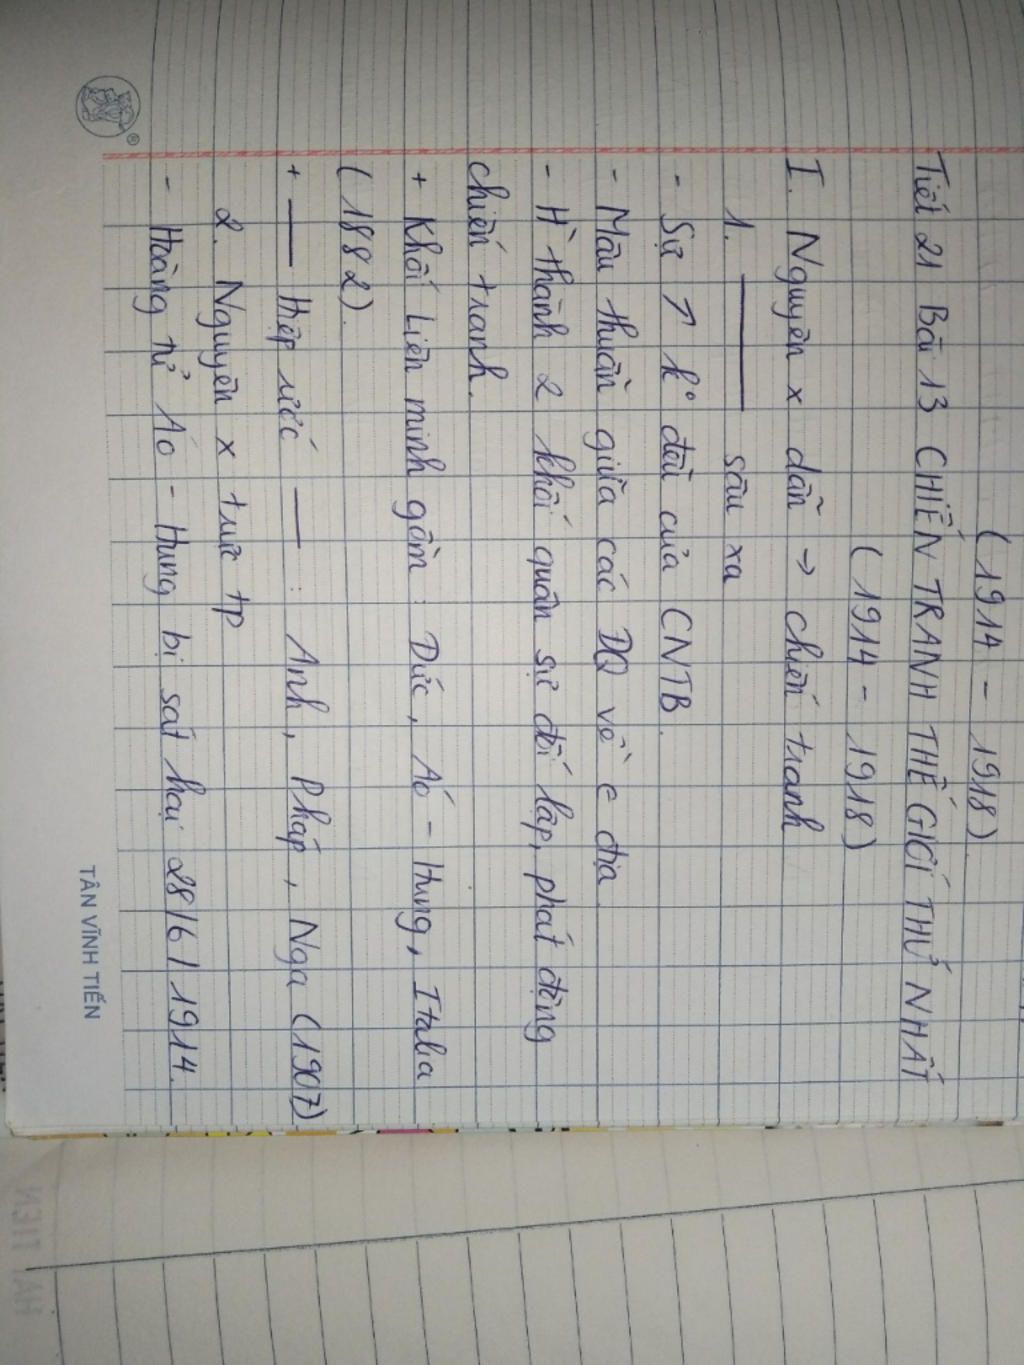 (1914 - 1918).
Tiết 21 Bài 13 CHIẾN TRANH THẾ GIỚI THỨ NHẤT
(1914 - 1918)
I. Nguyên x dẫn → chiến tranh
1. —— sâu xa
- Sự ↑ k° đều của CNTB.
- Mâu thuẫn giữa các ĐQ về € địa
- H` thành 2 khối quân sự đối lập, phát động
chiến tranh.
+ Khối Liên minh gồm: Đức, Áo - Hung, Italia
(1882).
+ —— Hiệp ước —— : Anh, Pháp, Nga (1907)
2. Nguyên x trực tp
- Hoàng tử Áo - Hung bị sát hại 28/6/1914.
TÂN VĨNH TIẾN